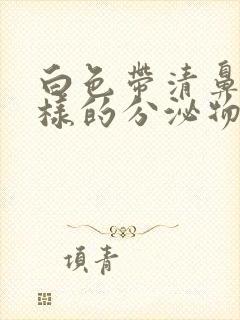 白色帶清鼻
樣的分泌物
項青